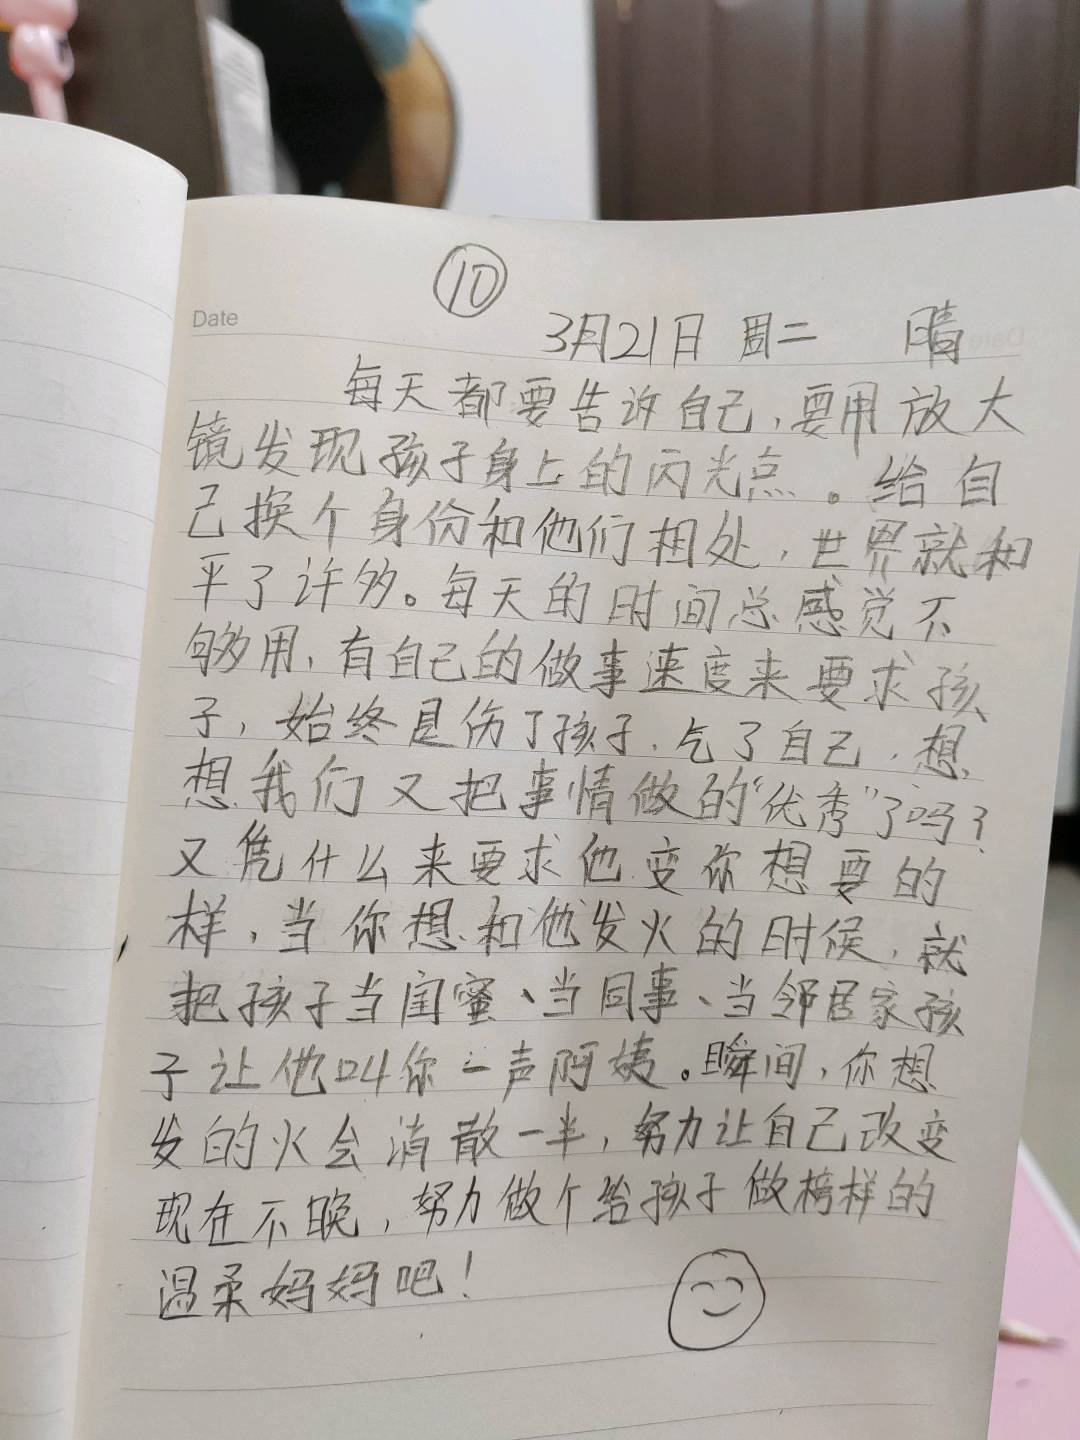 ⑩
Date
3月21日 周二 晴
每天都要告诉自己,要用放大
镜发现孩子身上的闪光点。给自
己换个身份和他们相处,世界就和
平了许多。每天的时间总感觉不
够用,有自己的做事速度来要求孩
子,始终是伤了孩子,气了自己,想
想我们又把事情做的“优秀”了吗?
又凭什么来要求他变你想要的
样,当你想和他发火的时候,就
把孩子当闺蜜、当同事、当邻居家孩
子让他叫你一声阿姨。瞬间,你想
发的火会消散一半,努力让自己改变
现在不晚,努力做个给孩子做榜样的
温柔妈妈吧!